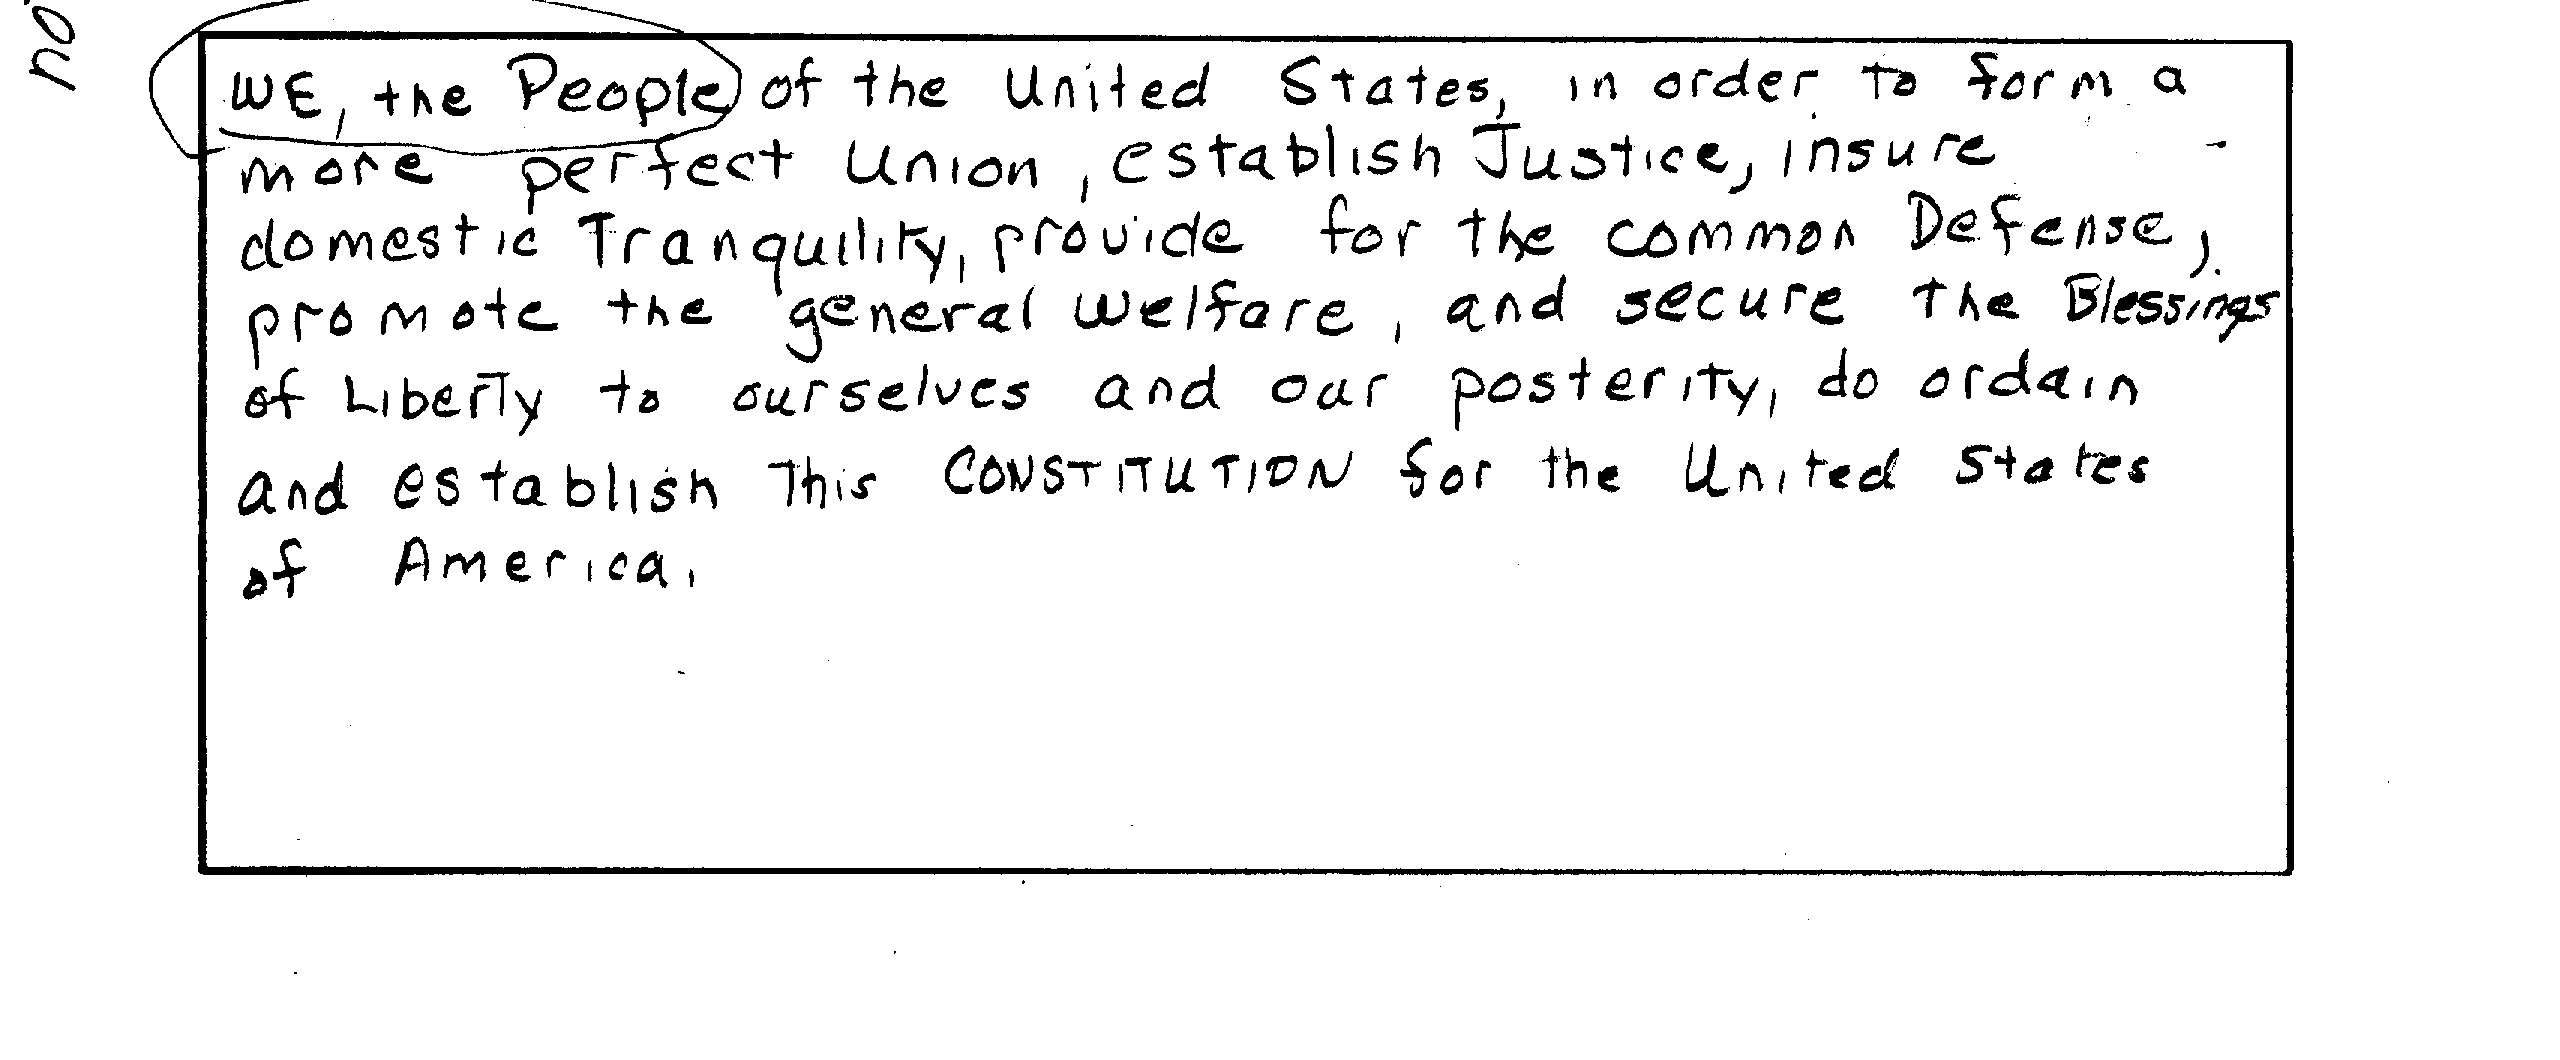 WE, the People of the United States, in order to form a
more perfect Union, establish Justice, insure
domestic Tranquility, provide for the common Defense,
promote the general Welfare, and secure the Blessings
of Liberty to ourselves and our posterity, do ordain
and establish This CONSTITUTION for the United States
of America.